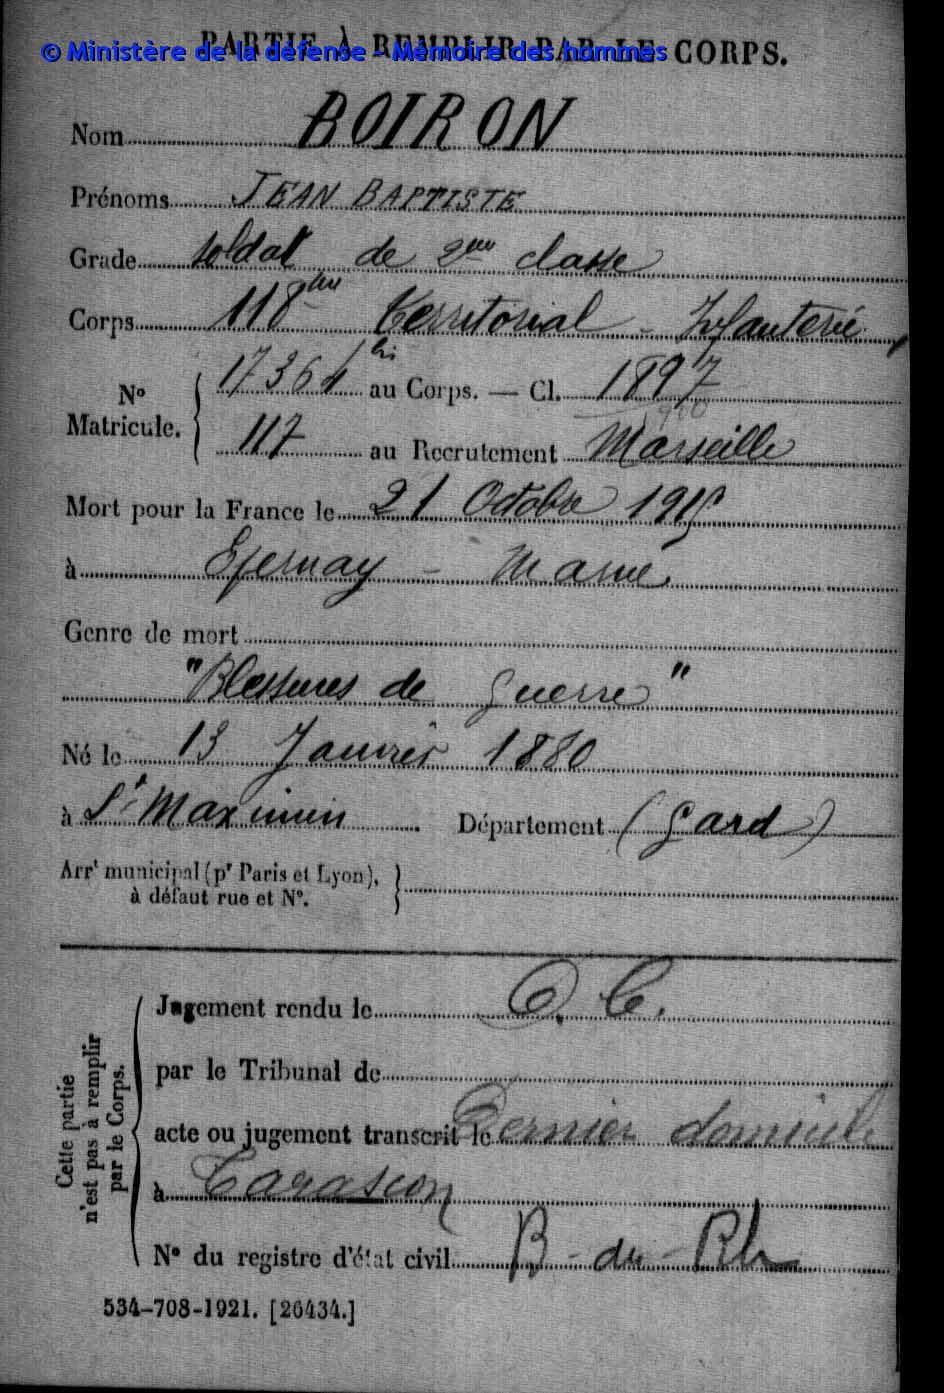 PARTIE À REMPLIR PAR LE CORPS.
© Ministère de la défense - Mémoire des hommes
Nom BOIRON
Prénoms JEAN BAPTISTE
Grade soldat de 2me classe
Corps 118me Territorial - Infanterie
No Matricule. 17364 bis au Corps. — Cl. 1897
1900
117 au Recrutement Marseille
Mort pour la France le 21 Octobre 1915
à Epernay - Marne
Genre de mort
"Blessures de guerre"
Né le 13 Janvier 1880
à St Maximin Département (Gard)
Arrt municipal (pr Paris et Lyon),
à défaut rue et N°.
Cette partie
n'est pas à remplir
par le Corps.
Jugement rendu le O. C.
par le Tribunal de
acte ou jugement transcrit le Dernier domicile
à Tarascon
N° du registre d'état civil B-du-Rh
534-708-1921. [26434.]